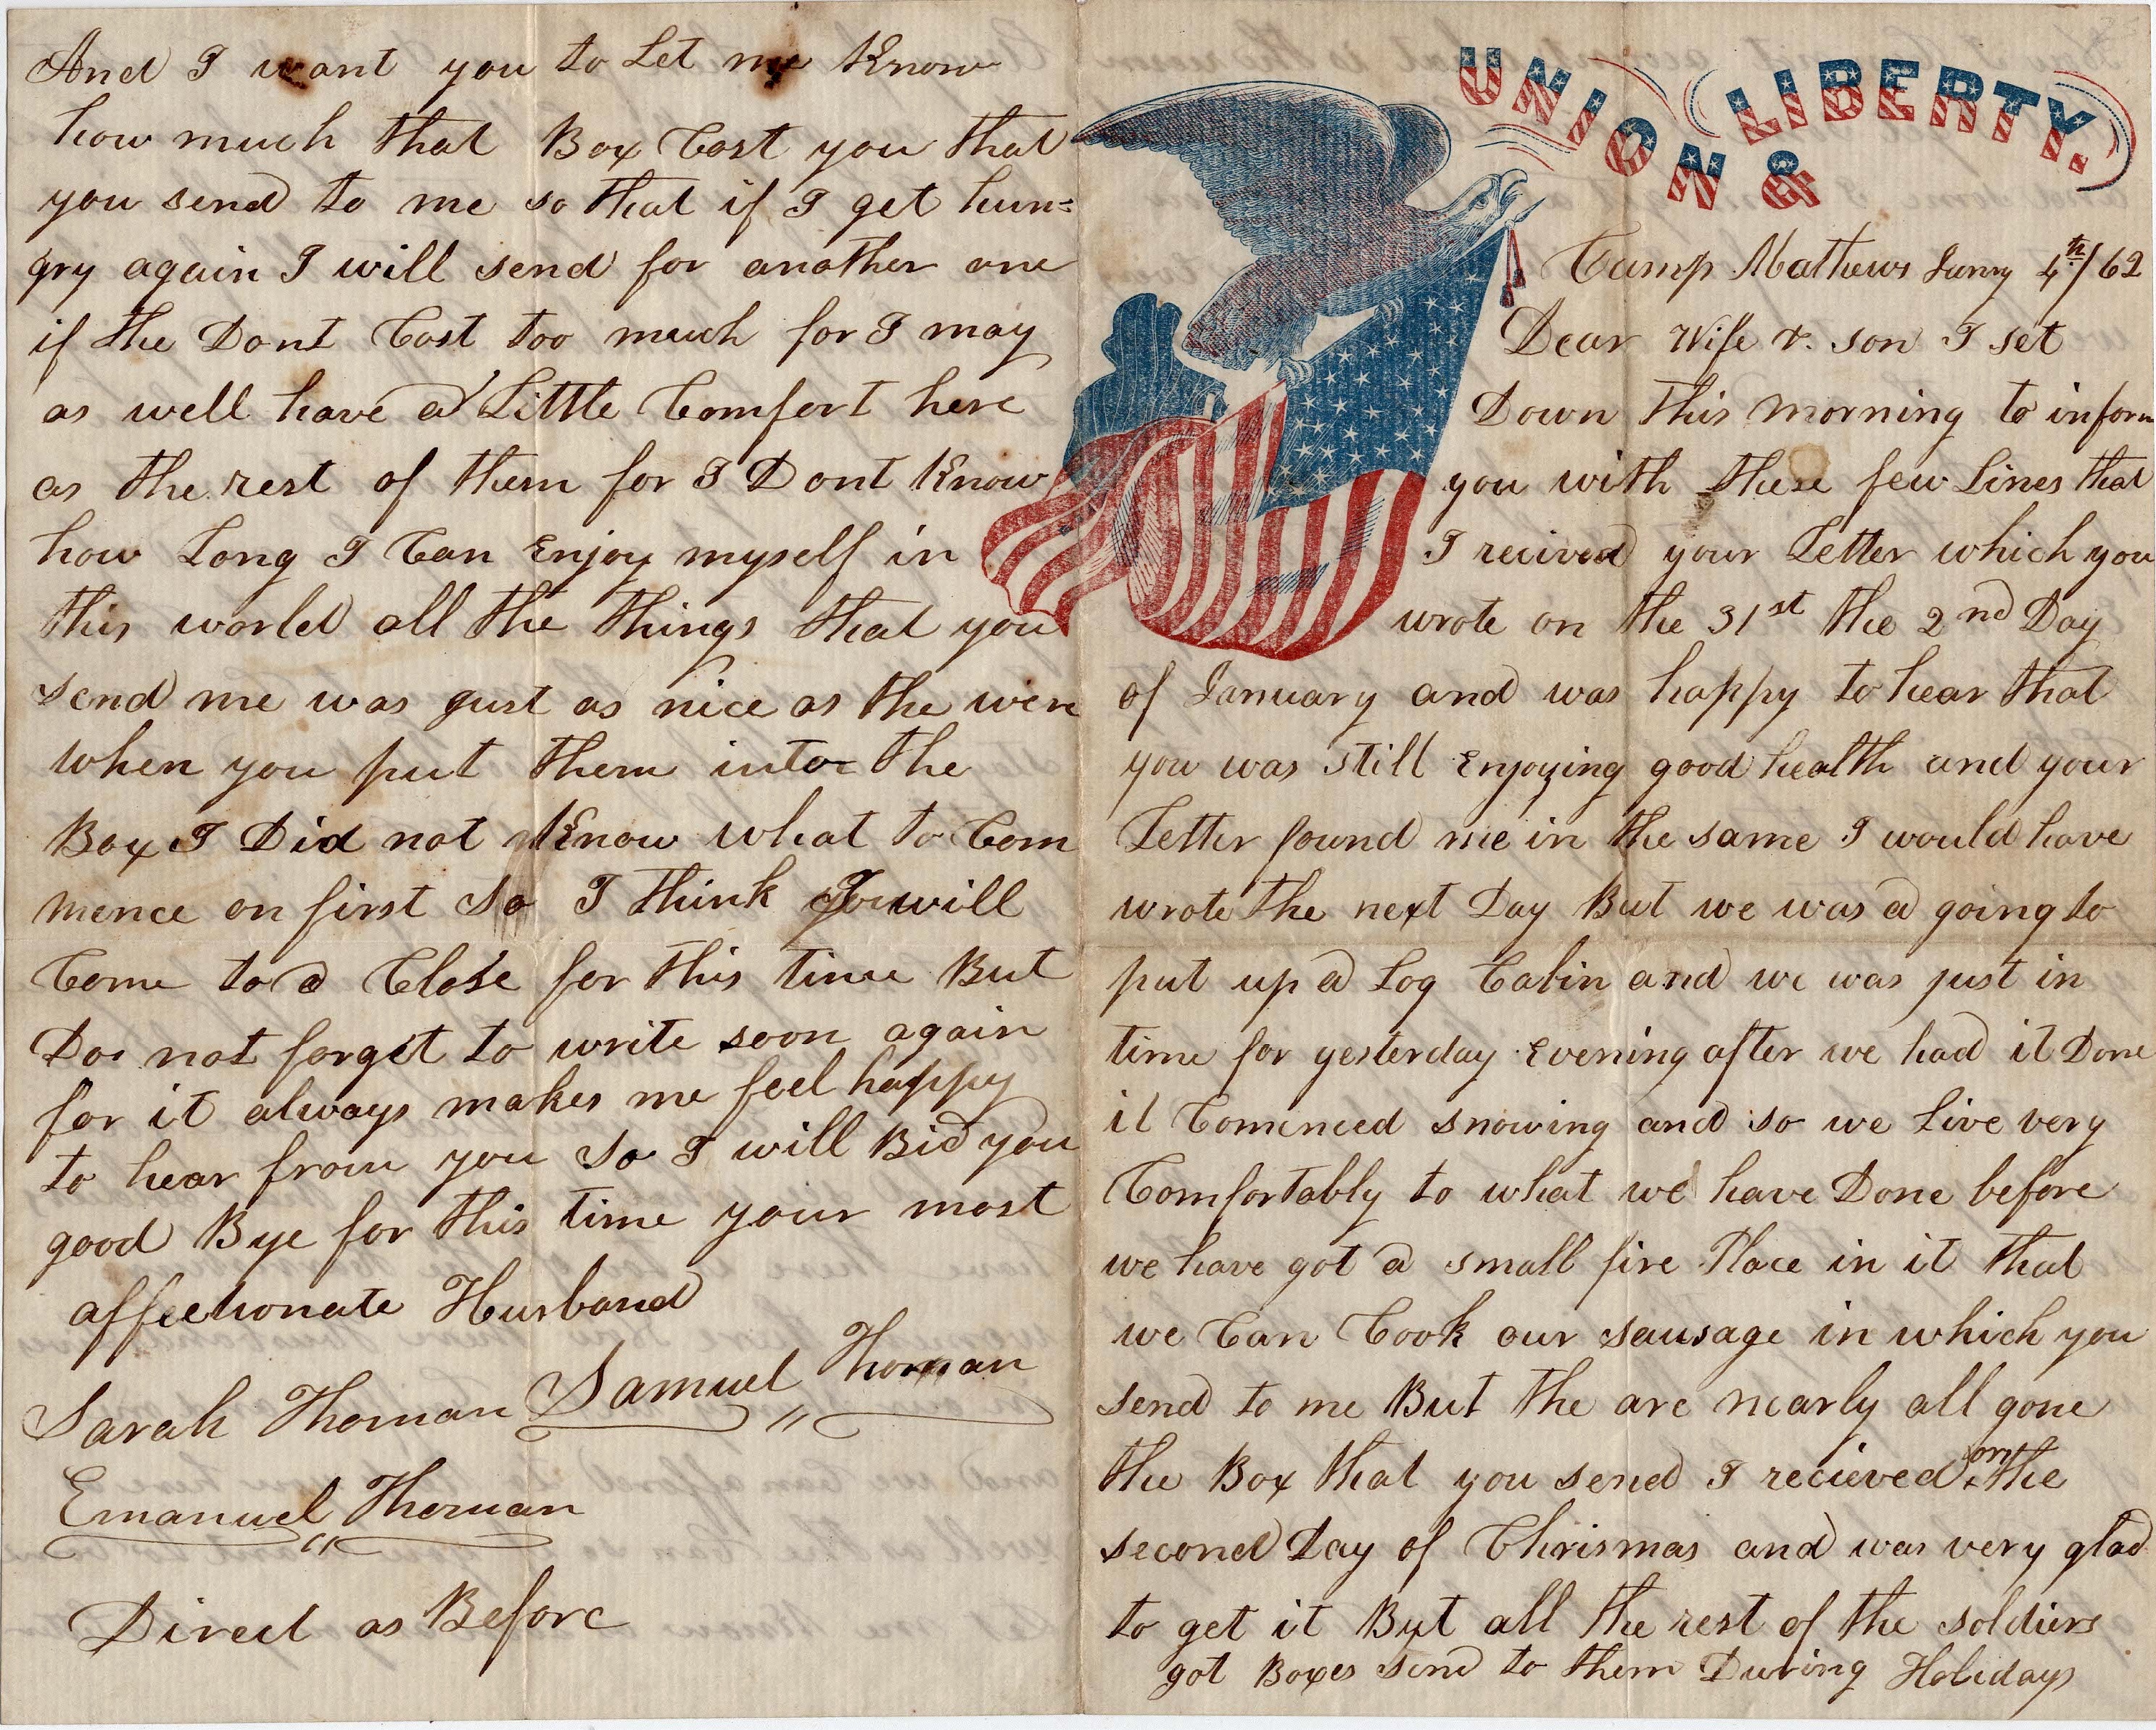 UNION & LIBERTY.
Camp Mathews Janry 4th/62
Dear Wife & son I set
Down this morning to inform
you with these few Lines that
I recived your Letter which you
wrote on the 31st the 2nd Day
of January and was happy to hear that
you was still Enjoying good health and your
Letter found me in the same I would have
wrote the next Day But we was a going to
put up a Log Cabin and we was just in
time for yesterday Evening after we had it Done
it Comenced snowing and so we Live very
Comfortably to what we have Done before
we have got a small fire Place in it that
we Can Cook our sausage in which you
send to me But the are nearly all gone
the Box that you send I recieved on the
second Day of Chrismas and was very glad
to get it But all the rest of the soldiers
got Boxes send to them During Holidays
And I want you to Let me Know
how much that Box Cost you that
you send to me so that if I get hun=
gry again I will send for another one
if the Dont Cost too much for I may
as well have a Little Comfort here
as the rest of them for I Dont Know
how Long I Can Enjoy myself in
this world all the things that you
send me was gust as nice as the were
when you put them into the
Box I Did not Know what to Com
mence on first So I think I will
Come to a Close for this time But
Do not forget to write soon again
for it always makes me feel happy
to hear from you So I will Bid you
good Bye for this time your most
affectionate Husband
Samuel Thoman
Sarah Thoman
Emanuel Thoman
Direct as Before